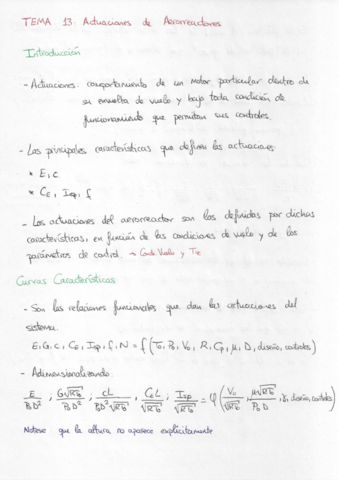 TEMA 13: Actuaciones de Aerorreactores
Introducción
- Actuaciones: comportamiento de un motor particular dentro de
su envuelta de vuelo y bajo toda condición de
funcionamiento que permitan sus controles.
- Las principales características que definen las actuaciones
* E, c
* C_E, Isp, f
- Las actuaciones del aerorreactor son las definidas por dichas
características, en función de las condiciones de vuelo y de los
parámetros de control. → Cond. Vuelo y
Curvas Características
- Son las relaciones funcionales que dan las actuaciones del
sistema.
E, G, c, C_E, Isp, f, N = f (T_0, P_0, V_0, R, C_p, μ, D, diseño, controles)
- Adimensionalizando:
E/P_0D² ; G√RT_0/P_0D² ; cL/P_0D²√RT_0 ; C_EL/√RT_0 ; Isp/√RT_0 = φ (V_0/√RT_0, μ√RT_0/P_0D, γ, diseño, controles)
Nótese que la altura no aparece explícitamente